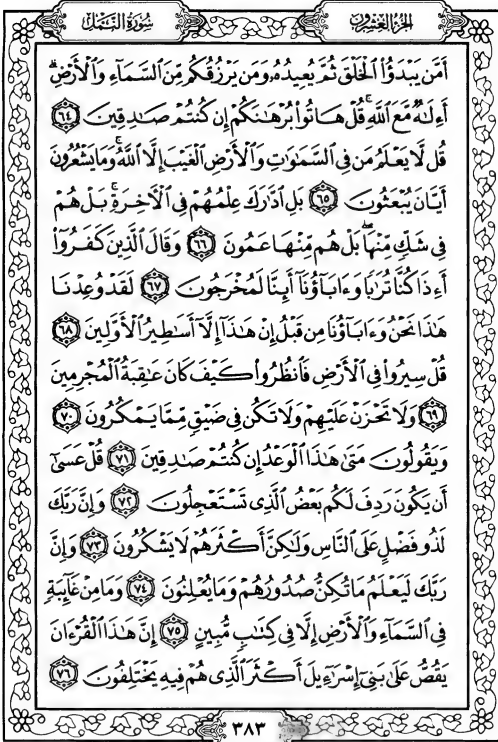 الجزء العشرون
سورة النمل
أَمَّن يَبْدَؤُا۟ ٱلْخَلْقَ ثُمَّ يُعِيدُهُۥ وَمَن يَرْزُقُكُم مِّنَ ٱلسَّمَآءِ وَٱلْأَرْضِ ۗ
أَءِلَـٰهٌ مَّعَ ٱللَّهِ ۚ قُلْ هَاتُوا۟ بُرْهَـٰنَكُمْ إِن كُنتُمْ صَـٰدِقِينَ ﴿٦٤﴾
قُل لَّا يَعْلَمُ مَن فِى ٱلسَّمَـٰوَٰتِ وَٱلْأَرْضِ ٱلْغَيْبَ إِلَّا ٱللَّهُ ۚ وَمَا يَشْعُرُونَ
أَيَّانَ يُبْعَثُونَ ﴿٦٥﴾ بَلِ ٱدَّٰرَكَ عِلْمُهُمْ فِى ٱلْـَٔاخِرَةِ ۚ بَلْ هُمْ
فِى شَكٍّ مِّنْهَا ۖ بَلْ هُم مِّنْهَا عَمُونَ ﴿٦٦﴾ وَقَالَ ٱلَّذِينَ كَفَرُوٓا۟
أَءِذَا كُنَّا تُرَٰبًا وَءَابَآؤُنَآ أَئِنَّا لَمُخْرَجُونَ ﴿٦٧﴾ لَقَدْ وُعِدْنَا
هَـٰذَا نَحْنُ وَءَابَآؤُنَا مِن قَبْلُ إِنْ هَـٰذَآ إِلَّآ أَسَـٰطِيرُ ٱلْأَوَّلِينَ ﴿٦٨﴾
قُلْ سِيرُوا۟ فِى ٱلْأَرْضِ فَٱنظُرُوا۟ كَيْفَ كَانَ عَـٰقِبَةُ ٱلْمُجْرِمِينَ
﴿٦٩﴾ وَلَا تَحْزَنْ عَلَيْهِمْ وَلَا تَكُن فِى ضَيْقٍ مِّمَّا يَمْكُرُونَ ﴿٧٠﴾
وَيَقُولُونَ مَتَىٰ هَـٰذَا ٱلْوَعْدُ إِن كُنتُمْ صَـٰدِقِينَ ﴿٧١﴾ قُلْ عَسَىٰٓ
أَن يَكُونَ رَدِفَ لَكُم بَعْضُ ٱلَّذِى تَسْتَعْجِلُونَ ﴿٧٢﴾ وَإِنَّ رَبَّكَ
لَذُو فَضْلٍ عَلَى ٱلنَّاسِ وَلَـٰكِنَّ أَكْثَرَهُمْ لَا يَشْكُرُونَ ﴿٧٣﴾ وَإِنَّ
رَبَّكَ لَيَعْلَمُ مَا تُكِنُّ صُدُورُهُمْ وَمَا يُعْلِنُونَ ﴿٧٤﴾ وَمَا مِنْ غَآئِبَةٍ
فِى ٱلسَّمَآءِ وَٱلْأَرْضِ إِلَّا فِى كِتَـٰبٍ مُّبِينٍ ﴿٧٥﴾ إِنَّ هَـٰذَا ٱلْقُرْءَانَ
يَقُصُّ عَلَىٰ بَنِىٓ إِسْرَٰٓءِيلَ أَكْثَرَ ٱلَّذِى هُمْ فِيهِ يَخْتَلِفُونَ ﴿٧٦﴾
٣٨٣